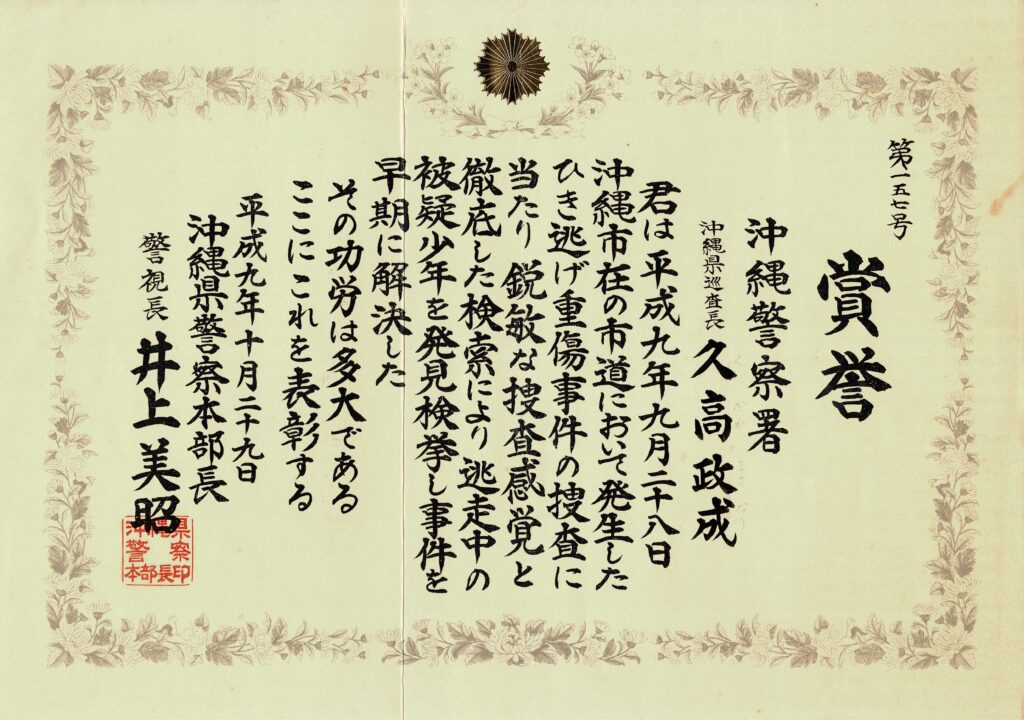 第一五七号
賞誉
沖縄警察署
沖縄県巡査長 久高政成
君は平成九年九月二十八日
沖縄市在の市道において発生した
ひき逃げ重傷事件の捜査に
当たり 鋭敏な捜査感覚と
徹底した検索により逃走中の
被疑少年を発見検挙し事件を
早期に解決した
その功労は多大である
ここに これを表彰する
平成九年十月二十九日
沖縄県警察本部長
警視長 井上美昭
沖縄県
警察
本部長印